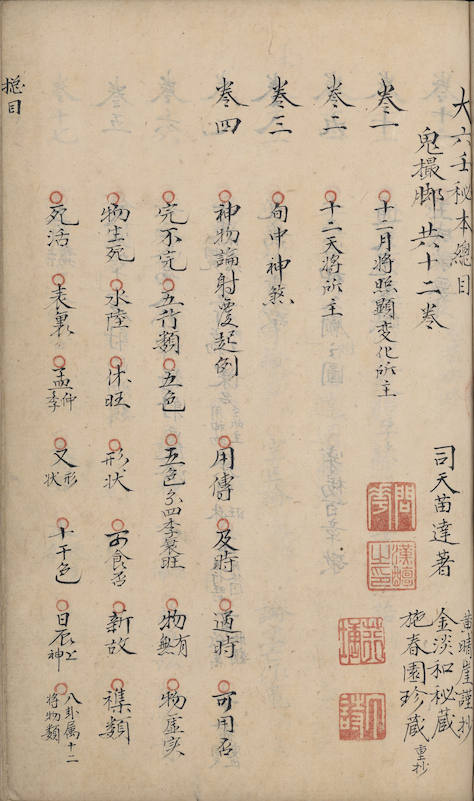 大六壬秘本總目
鬼撮脚 共十二卷 司天苗達著
苗晴崖謹抄
金淡和秘藏
施春園珍藏 重抄
卷一 十二月將照顯变化所主
卷二 十二天將所主
卷三 旬中神煞
卷四 神物論射覆起例 用傳 及時 過時 可用否
完不完 五行類 五色 五色分四季衰旺 物有無 物虛实
物生死 水陸 休旺 形狀 可食否 新故 襍類
死活 表裏 孟仲季 又形状 十干色 日辰上神 八卦属十二將物類
總目